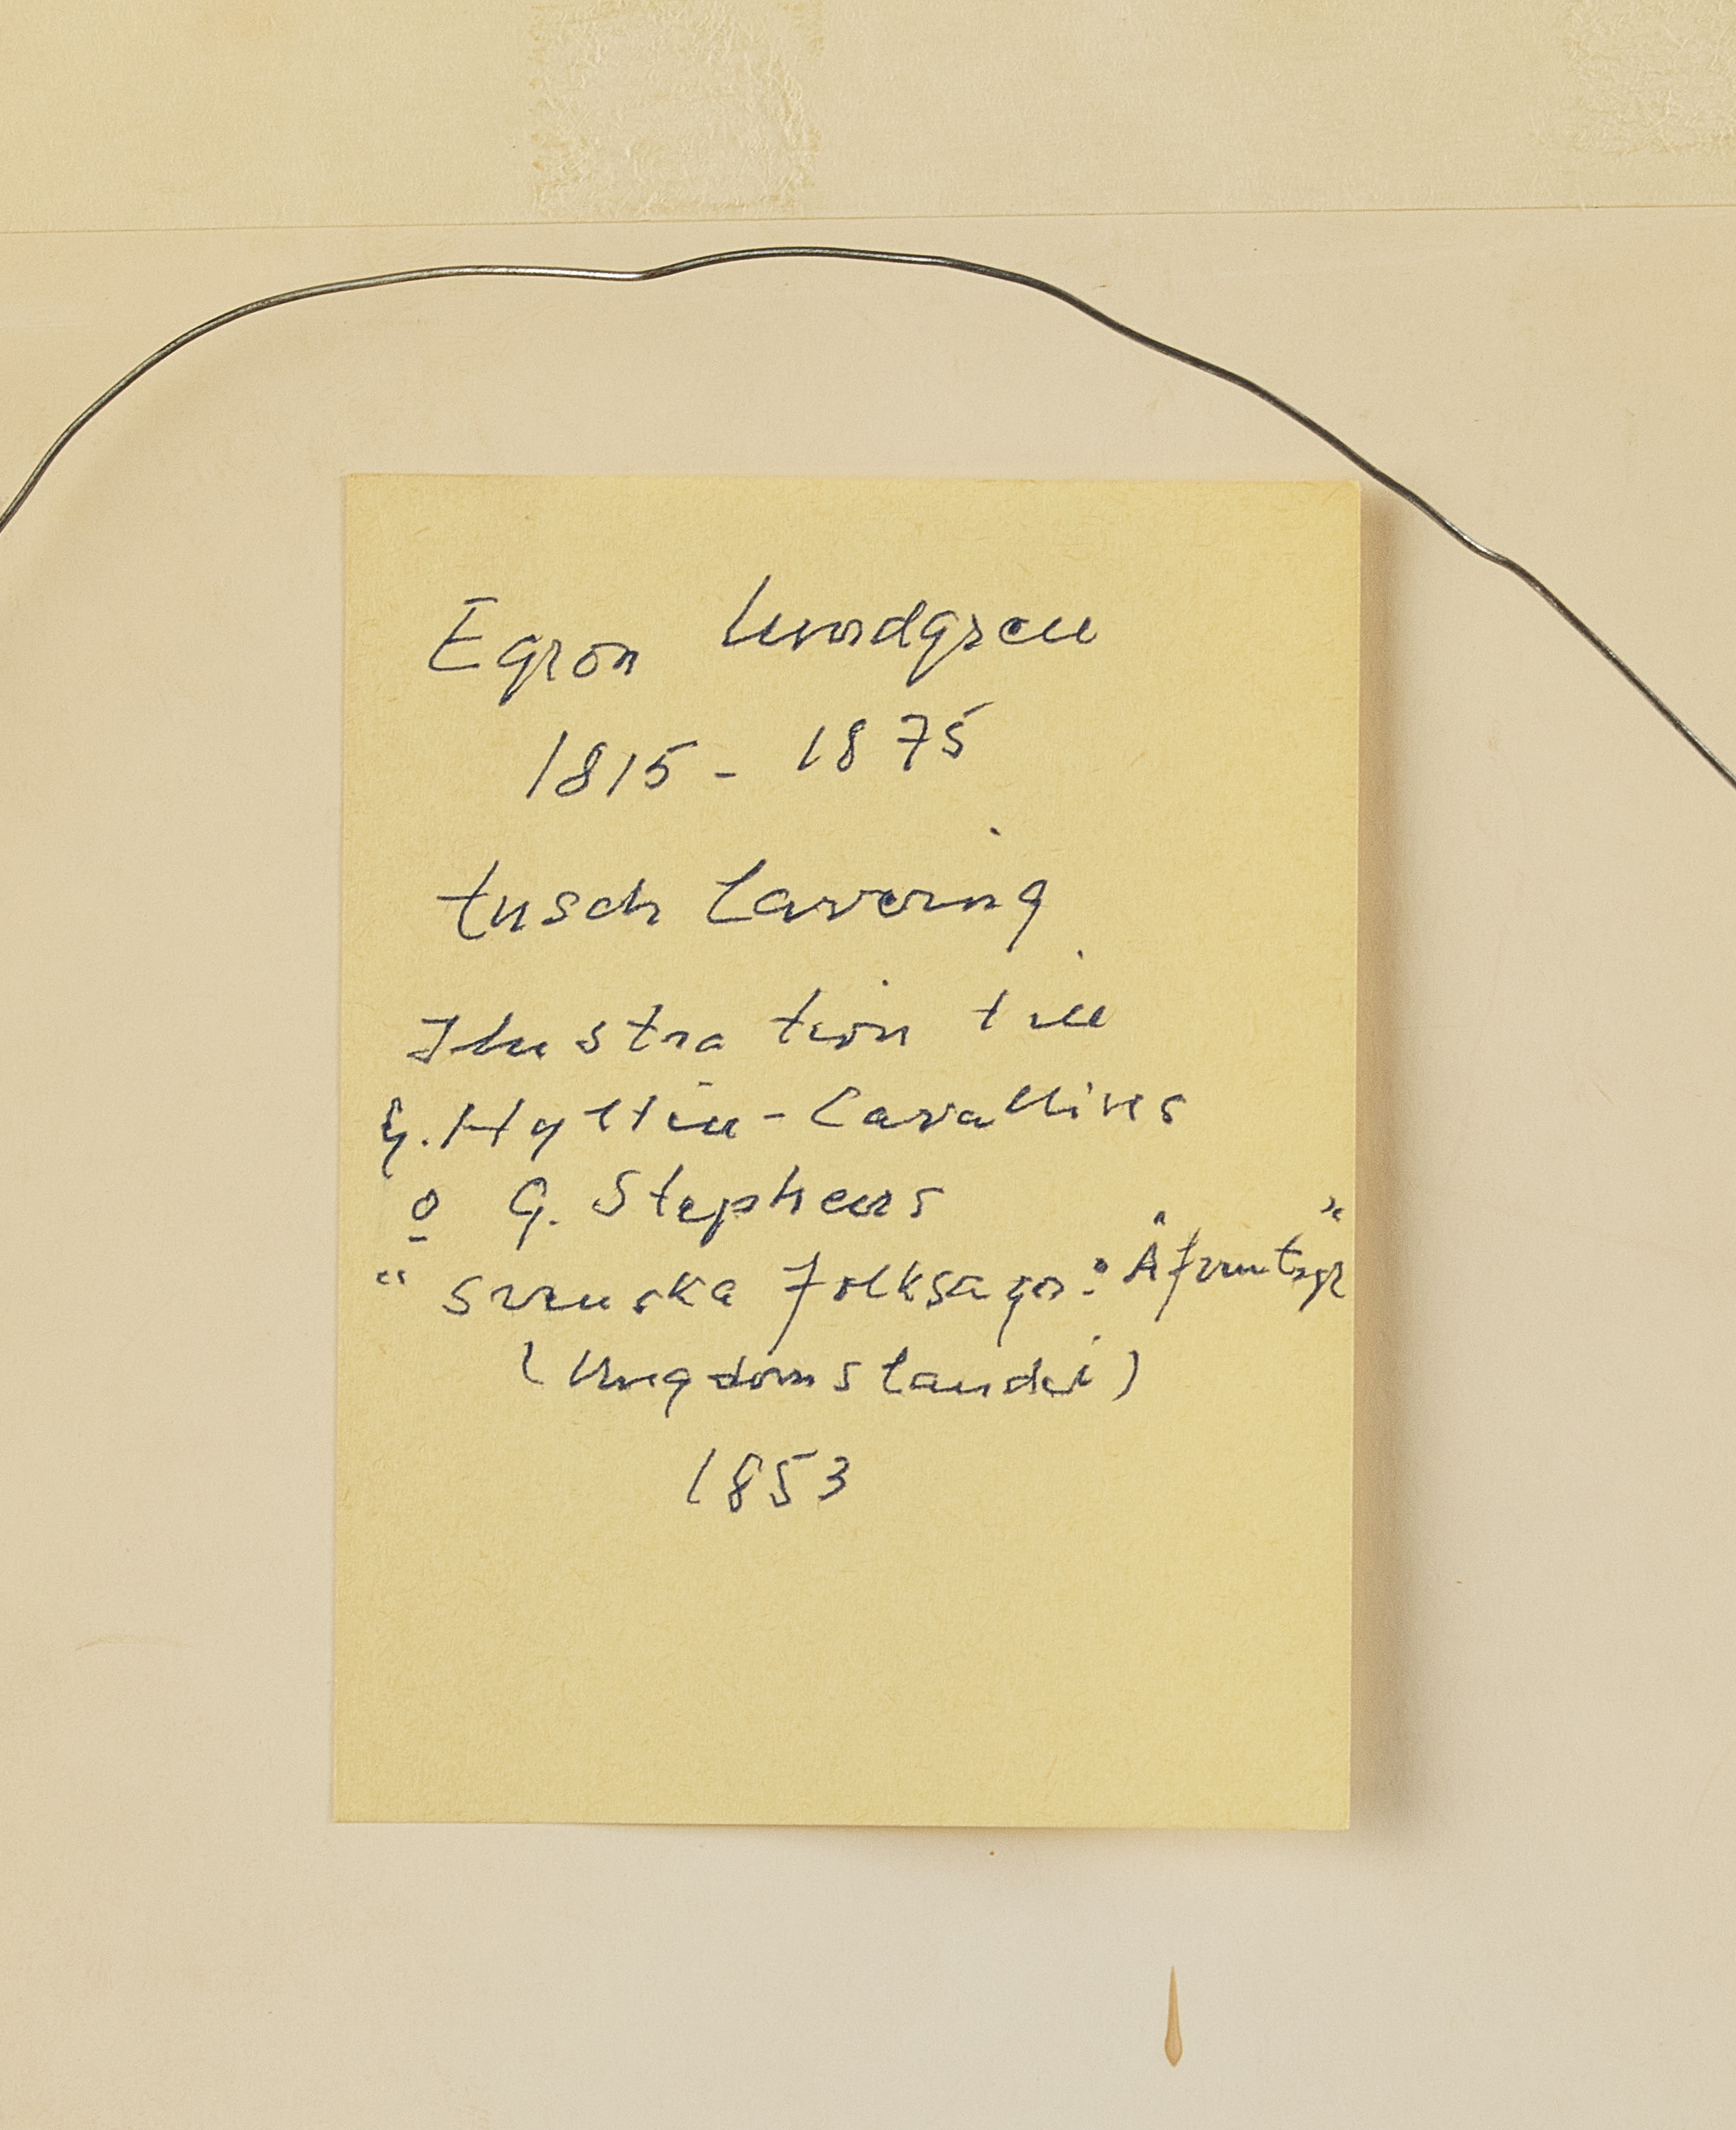 Egron Lundgren
1815 - 1875
tusch lavering
Illustration till
G. Hyltén-Cavallius
o G. Stephens
"Svenska Folksagor: Äfventyr"
(Ungdomslandet)
1853